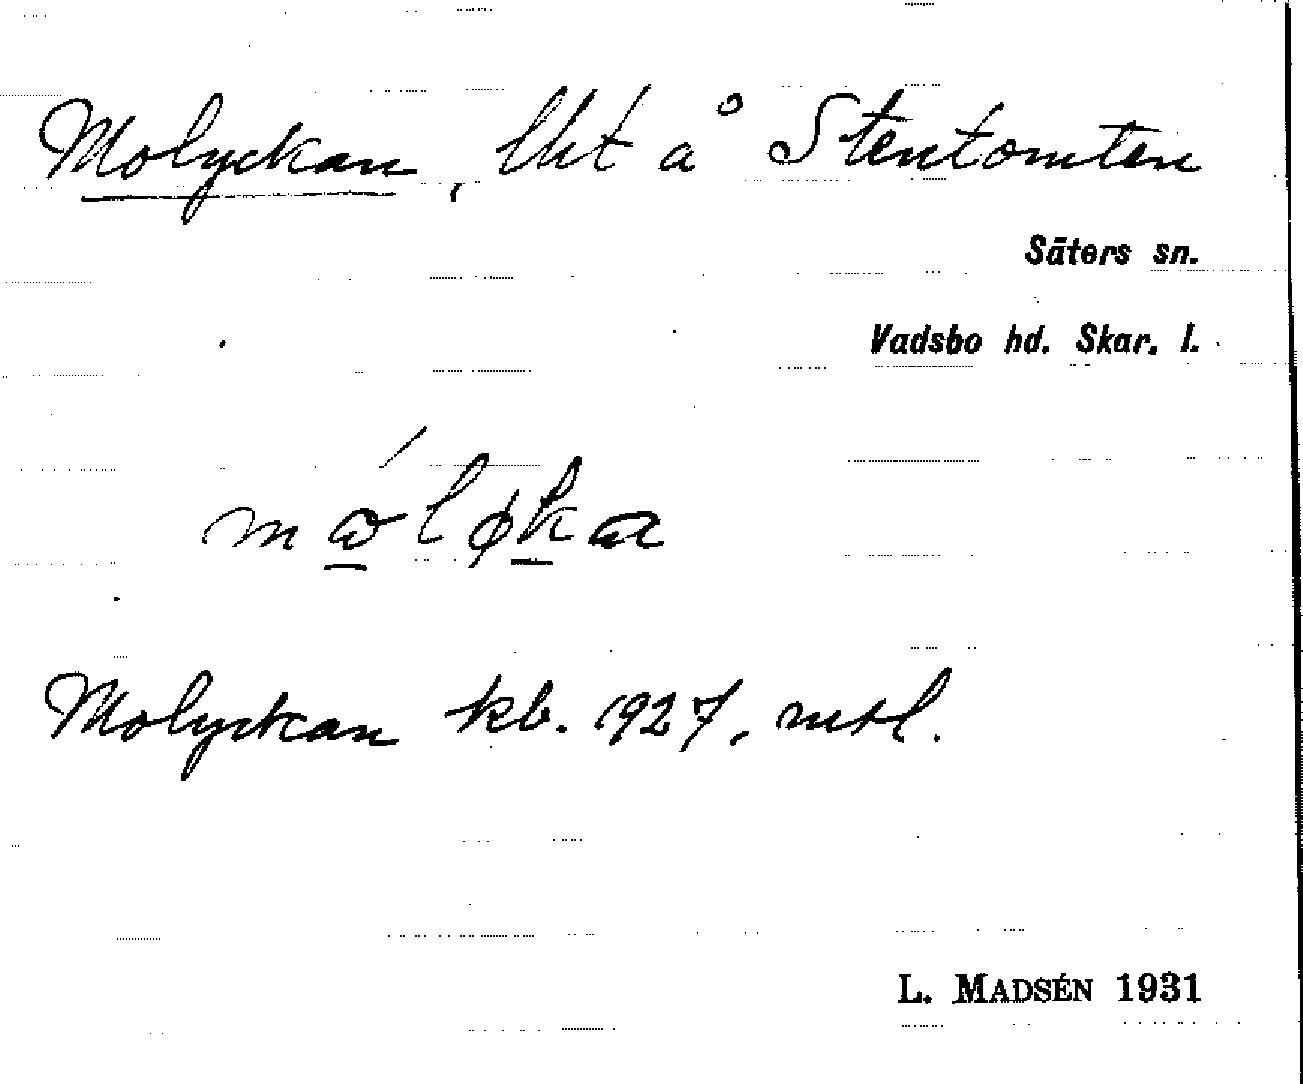 Molyckan, lht å Stentomten
Säters sn.
Vadsbo hd. Skar. l.
mɷ́løka
Molyckan kb. 1927, mtl.
L. MADSÉN 1931